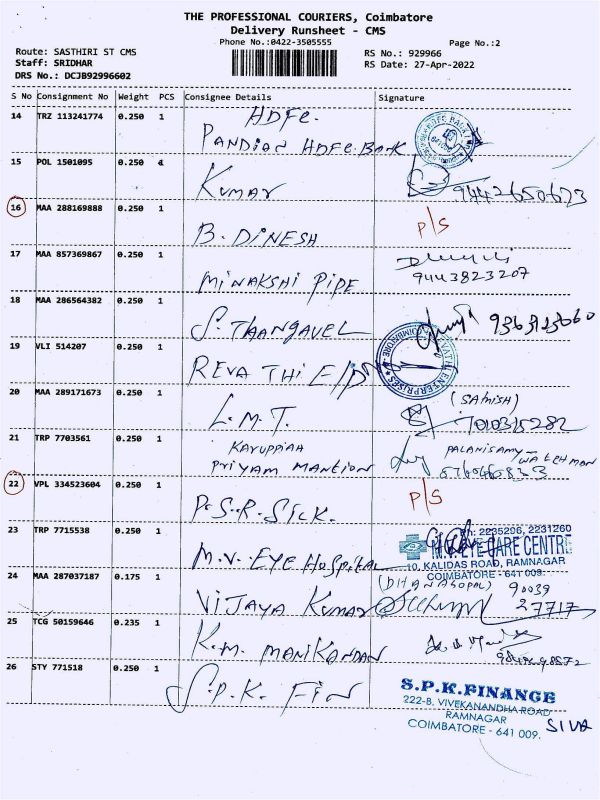 THE PROFESSIONAL COURIERS, Coimbatore
Delivery Runsheet - CMS
Phone No.:0422-3505555
Page No.:2
Route: SASTHIRI ST CMS
Staff: SRIDHAR
DRS No.: DCJB92996602
RS No.: 929966
RS Date: 27-Apr-2022
S No Consignment No Weight PCS Consignee Details Signature
14 TRZ 113241774 0.250 1 HDFC
PANDIAN HDFC BANK
15 POL 1501095 0.250 KUMAR 9442650673
16 MAA 288169888 0.250 1 B. DINESH P/S
17 MAA 857369867 0.250 1 MINAKSHI PIPE 9443823207
18 MAA 286564382 0.250 1 S. THANGAVEL
19 VLI 514207 0.250 1 REVATHI E/P
ENTERPRISES
COIMBATORE
20 MAA 289171673 0.250 1 L.M.T. (SATHISH)
21 TRP 7703561 0.250 1 KARUPPIAH
PRIYAM MANTION
PALANISAMY
WATCHMAN
22 VPL 334523604 0.250 1 P.S.R. SICK. P/S
23 TRP 7715538 0.250 1 M.V. EYE HOSPITAL
Ph: 2235296, 2231260
EYE CARE CENTRE
10, KALIDAS ROAD, RAMNAGAR
COIMBATORE - 641 009.
24 MAA 287037187 0.175 1 VIJAYA KUMAR (DHANAGOPAL) 90039
27717
25 TCG 50159646 0.235 1 K.M. MANIKANDAN
26 STY 771518 0.250 1 S.P.K. FIN
S.P.K.FINANCE
222-B, VIVEKANANDHA ROAD
RAMNAGAR
COIMBATORE - 641 009.
SIVA